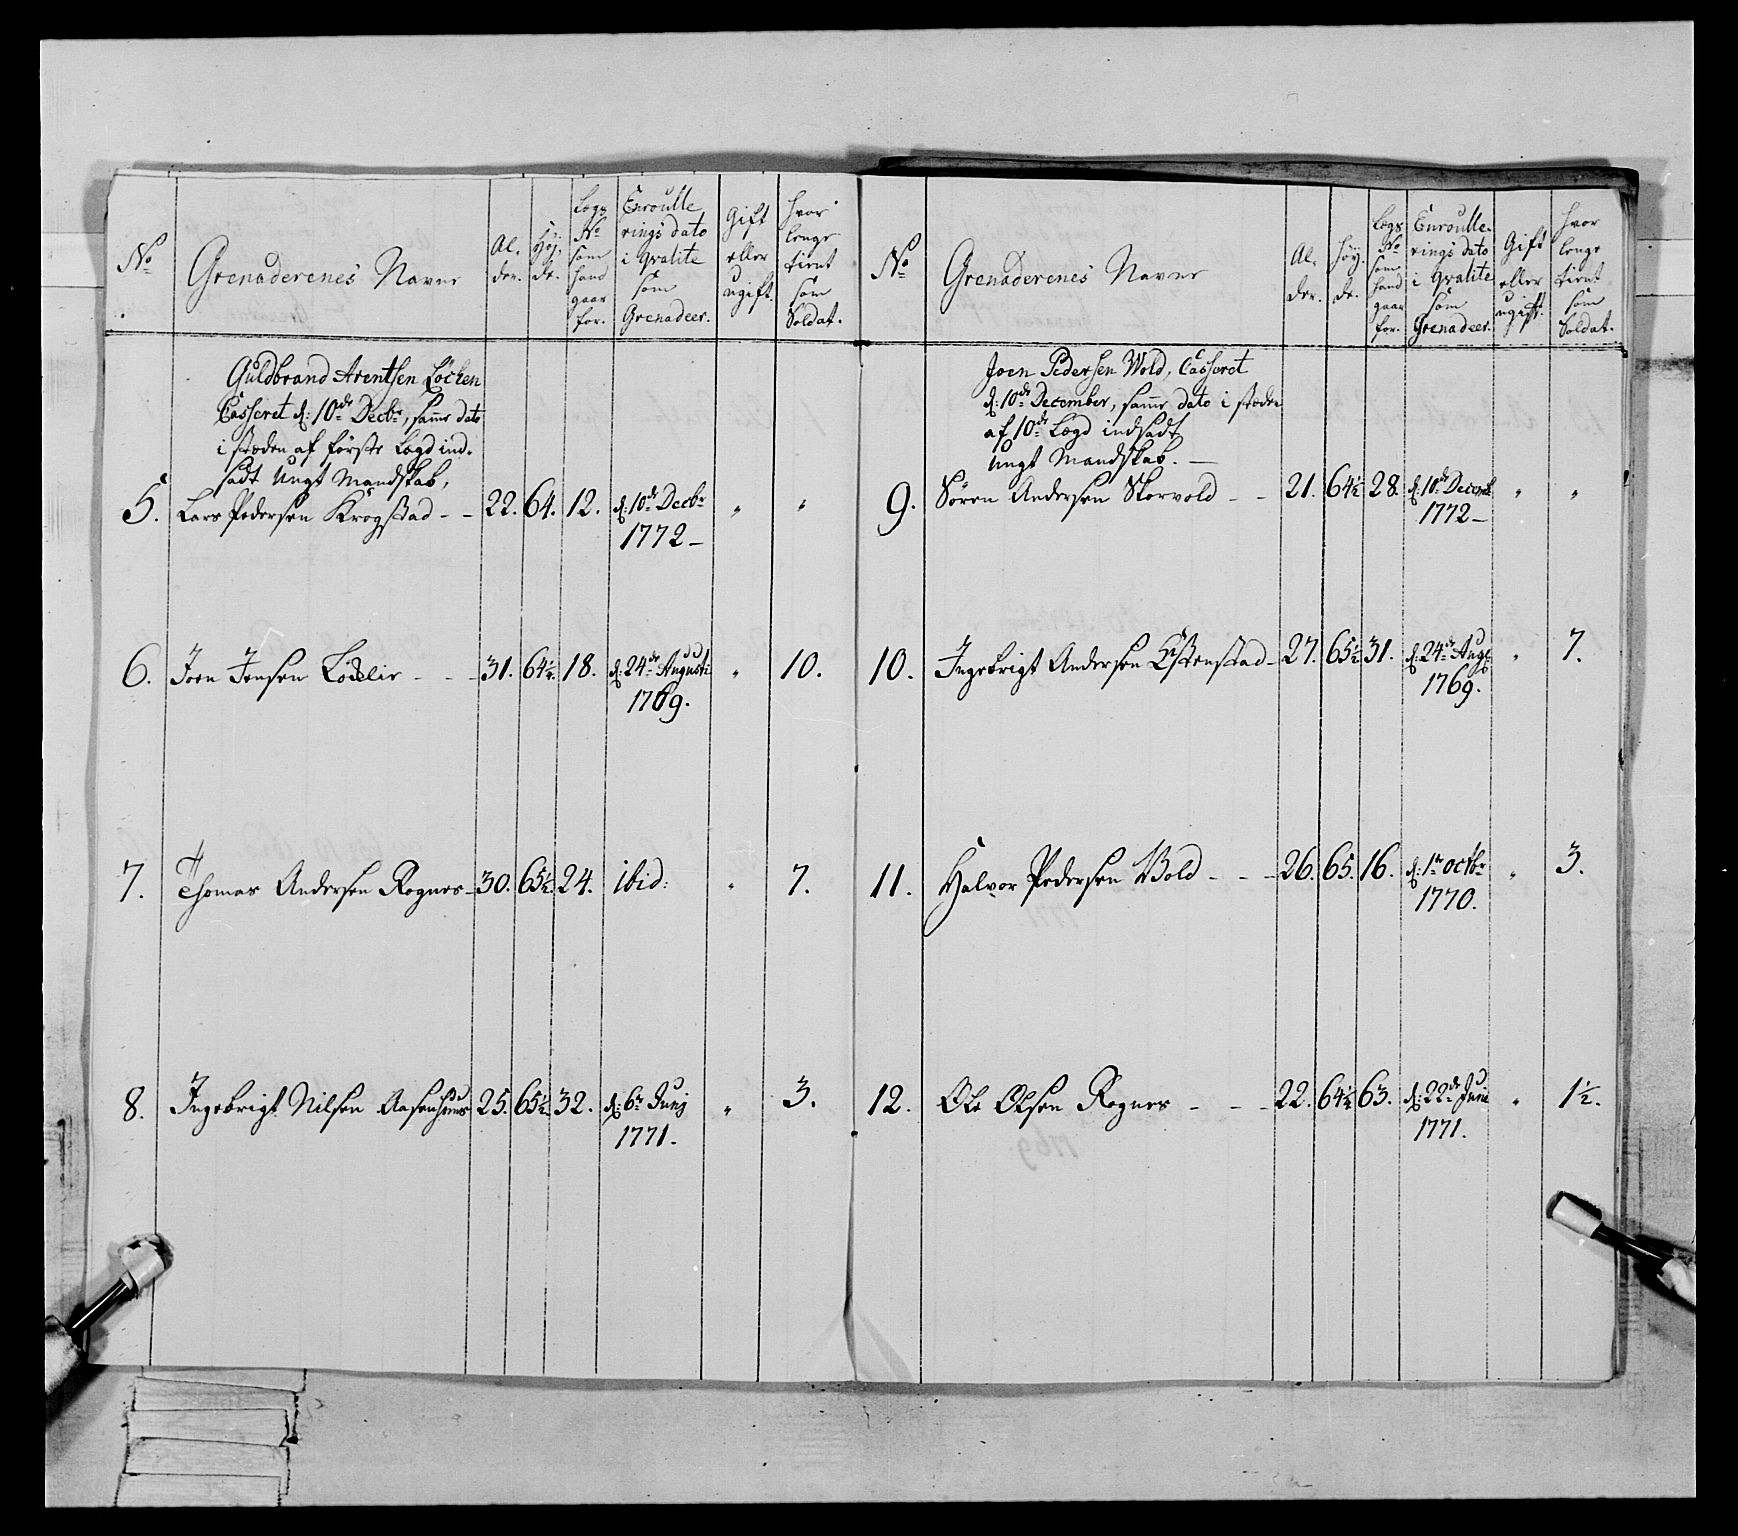 No
Grenaderenes Navne
Al-
der.
Høj-
de.
Legs
No
som
hand
gaar
for.
Enroulle
rings dato
i Qvalite
som
Grenadeer.
Gift
eller
ugift.
hvor
lenge
tient
som
Soldat.
Guldbrand Arentsen Løcken
Casseret d: 10de Decbr, samme dato
i stæden af förste Legd ind-
sadt Ungt Mandskab,
5. Lars Pedersen Krogstad - - 22. 64. 12. d: 10de Decbr " "
1772 -
6. Joen Jensen Lødslie - - - 31. 64½. 18. d: 24de Augusti " 10.
1769.
7. Thomas Andersen Rognes - 30. 65½. 24. ibid: " 7.
8. Ingebrigt Nilsen Aasenhuus 25. 65½. 32. d: 6te Junij " 3.
1771.
No
Grenaderenes Navne
Al-
der.
Høy-
de.
Legs
No
som
hand
gaar
for.
Enroulle-
rings dato
i Qvalite
som
Grenadeer.
Gift
eller
ugift.
hvor
lenge
tient
som
Soldat.
Joen Pedersen Wold, Casseret
d: 10de December, samme dato i stæden
af 10de Lægd indsadt
Ungt Mandskab. -
9. Sören Andersen Storvold - - 21. 64½ 28. d: 10de Decemb " "
1772 -
10. Ingebrigt Andersen Østenstad - 27. 65½ 31. d: 24de Aug: " 7.
1769.
11. Halvor Pedersen Wold - - - 26. 65. 16. d: 1te octbr " 3.
1770.
12. Ole Olsen Rognes - - - 22. 64½ 63. d: 22de Junii " 1½.
1771.